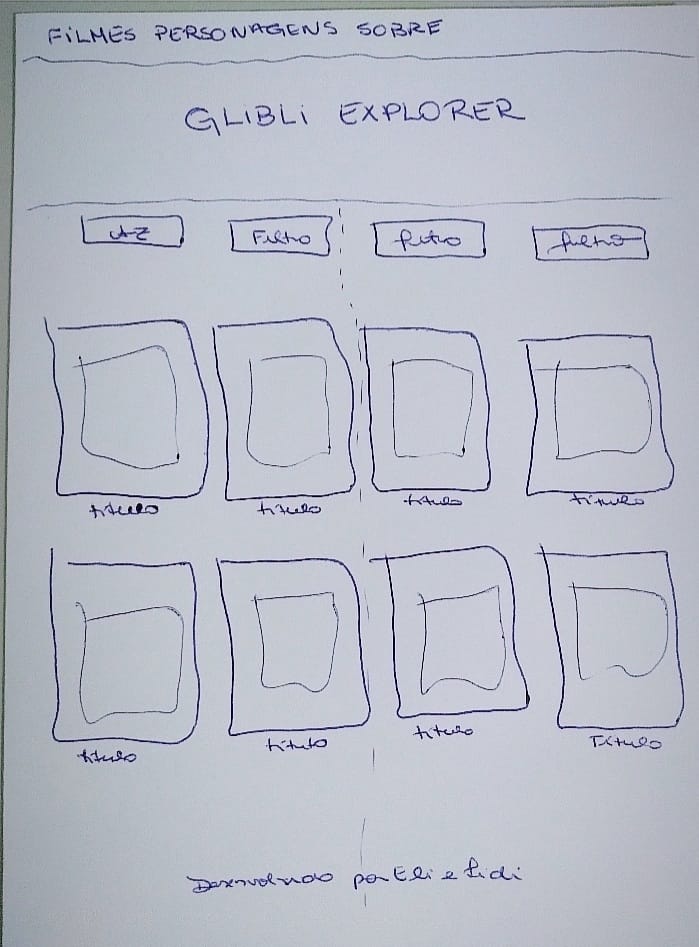 FILMES PERSONAGENS SOBRE
GLIBLI EXPLORER
AZ Filtro filtro filtro
titulo titulo titulo titulo
titulo titulo titulo Titulo
Desenvolvido por Eli e Lidi